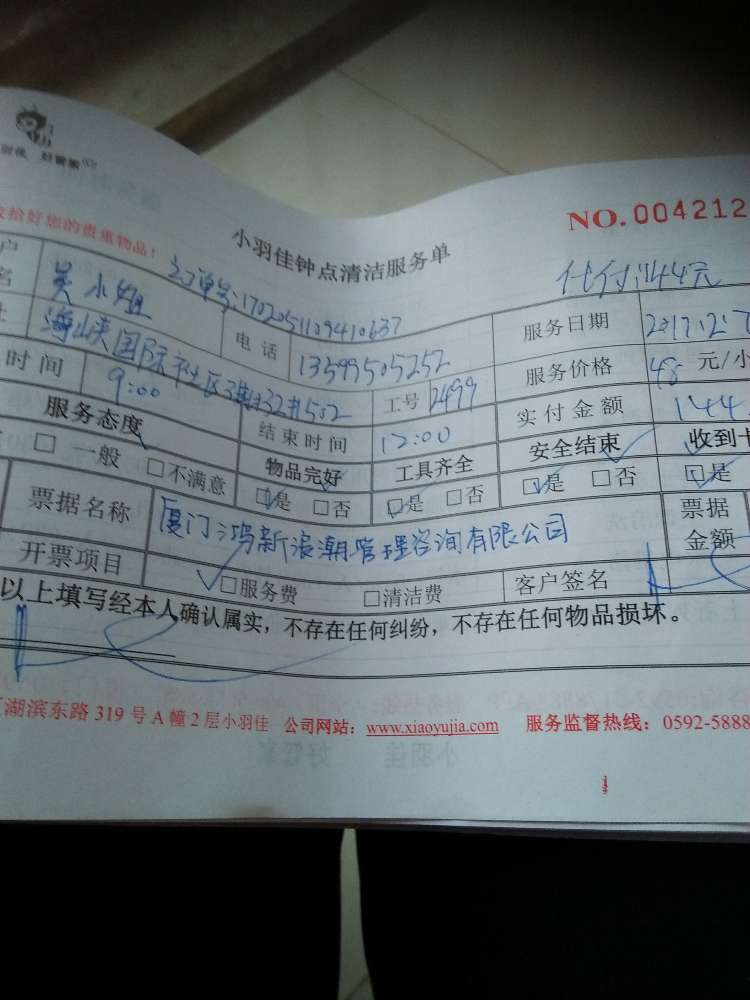 好管家
收拾好您的贵重物品！
小羽佳钟点清洁服务单
NO. 004212
订单号:1702051109410637
代付:144元
户名 吴小姐 电话 13599505252 服务日期 2017.2.7
址 海峡国际社区3期32#1502 工号 2499 服务价格 48 元/小
时间 9:00 结束时间 12:00 实付金额 144
服务态度 物品完好 工具齐全 安全结束 收到卡
□ 一般 □不满意 □是 □否 □是 □否 □是 □否 □是
票据名称 厦门鸿新浪潮管理咨询有限公司 票据金额
开票项目 □服务费 □清洁费 客户签名
以上填写经本人确认属实，不存在任何纠纷，不存在任何物品损坏。
湖滨东路 319 号 A 幢 2 层小羽佳 公司网站：www.xiaoyujia.com 服务监督热线：0592-5888